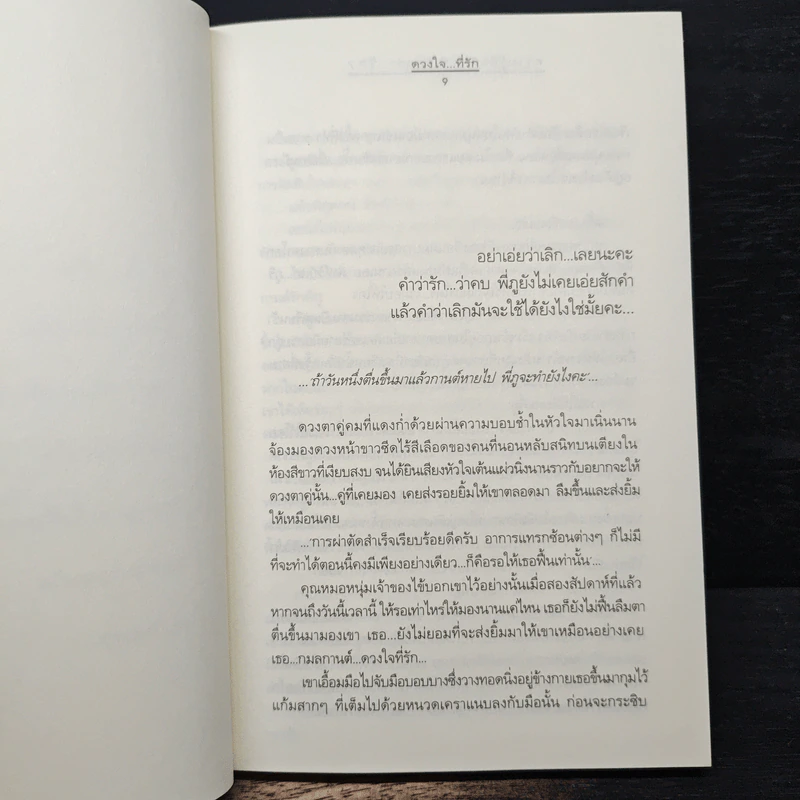 ดวงใจ...ที่รัก
๑
อย่าเอ่ยว่าเลิก...เลยนะคะ
คำว่ารัก...ว่าคบ พี่ภูยังไม่เคยเอ่ยสักคำ
แล้วคำว่าเลิกมันจะใช้ได้ยังไงใช่มั้ยคะ...
...‘ถ้าวันหนึ่งตื่นขึ้นมาแล้วกานต์หายไป พี่ภูจะทำยังไงคะ’...
ดวงตาคู่คมที่แดงก่ำด้วยผ่านความบอบช้ำในหัวใจมาเนิ่นนาน
จ้องมองดวงหน้าขาวซีดไร้สีเลือดของคนที่นอนหลับสนิทบนเตียงใน
ห้องสีขาวที่เงียบสงบ จนได้ยินเสียงหัวใจเต้นแผ่วนิ่งนานราวกับอยากจะให้
ดวงตาคู่นั้น...คู่ที่เคยมอง เคยส่งรอยยิ้มให้เขาตลอดมา ลืมขึ้นและส่งยิ้ม
ให้เหมือนเคย
...‘การผ่าตัดสำเร็จเรียบร้อยดีครับ อาการแทรกซ้อนต่างๆ ก็ไม่มี
ที่จะทำได้ตอนนี้คงมีเพียงอย่างเดียว...ก็คือรอให้เธอฟื้นเท่านั้น’...
คุณหมอหนุ่มเจ้าของไข้บอกเขาไว้อย่างนั้นเมื่อสองสัปดาห์ที่แล้ว
หากจนถึงวันนี้เวลานี้ ให้รอเท่าไหร่ให้มองนานแค่ไหน เธอก็ยังไม่ฟื้นลืมตา
ตื่นขึ้นมามองเขา เธอ...ยังไม่ยอมที่จะส่งยิ้มมาให้เขาเหมือนอย่างเคย
เธอ...กมลกานต์...ดวงใจที่รัก...
เขาเอื้อมมือไปจับมือบอบบางซึ่งวางทอดนิ่งอยู่ข้างกายเธอขึ้นมากุมไว้
แก้มสากๆ ที่เต็มไปด้วยหนวดเคราแนบลงกับมือนั้น ก่อนจะกระซิบ